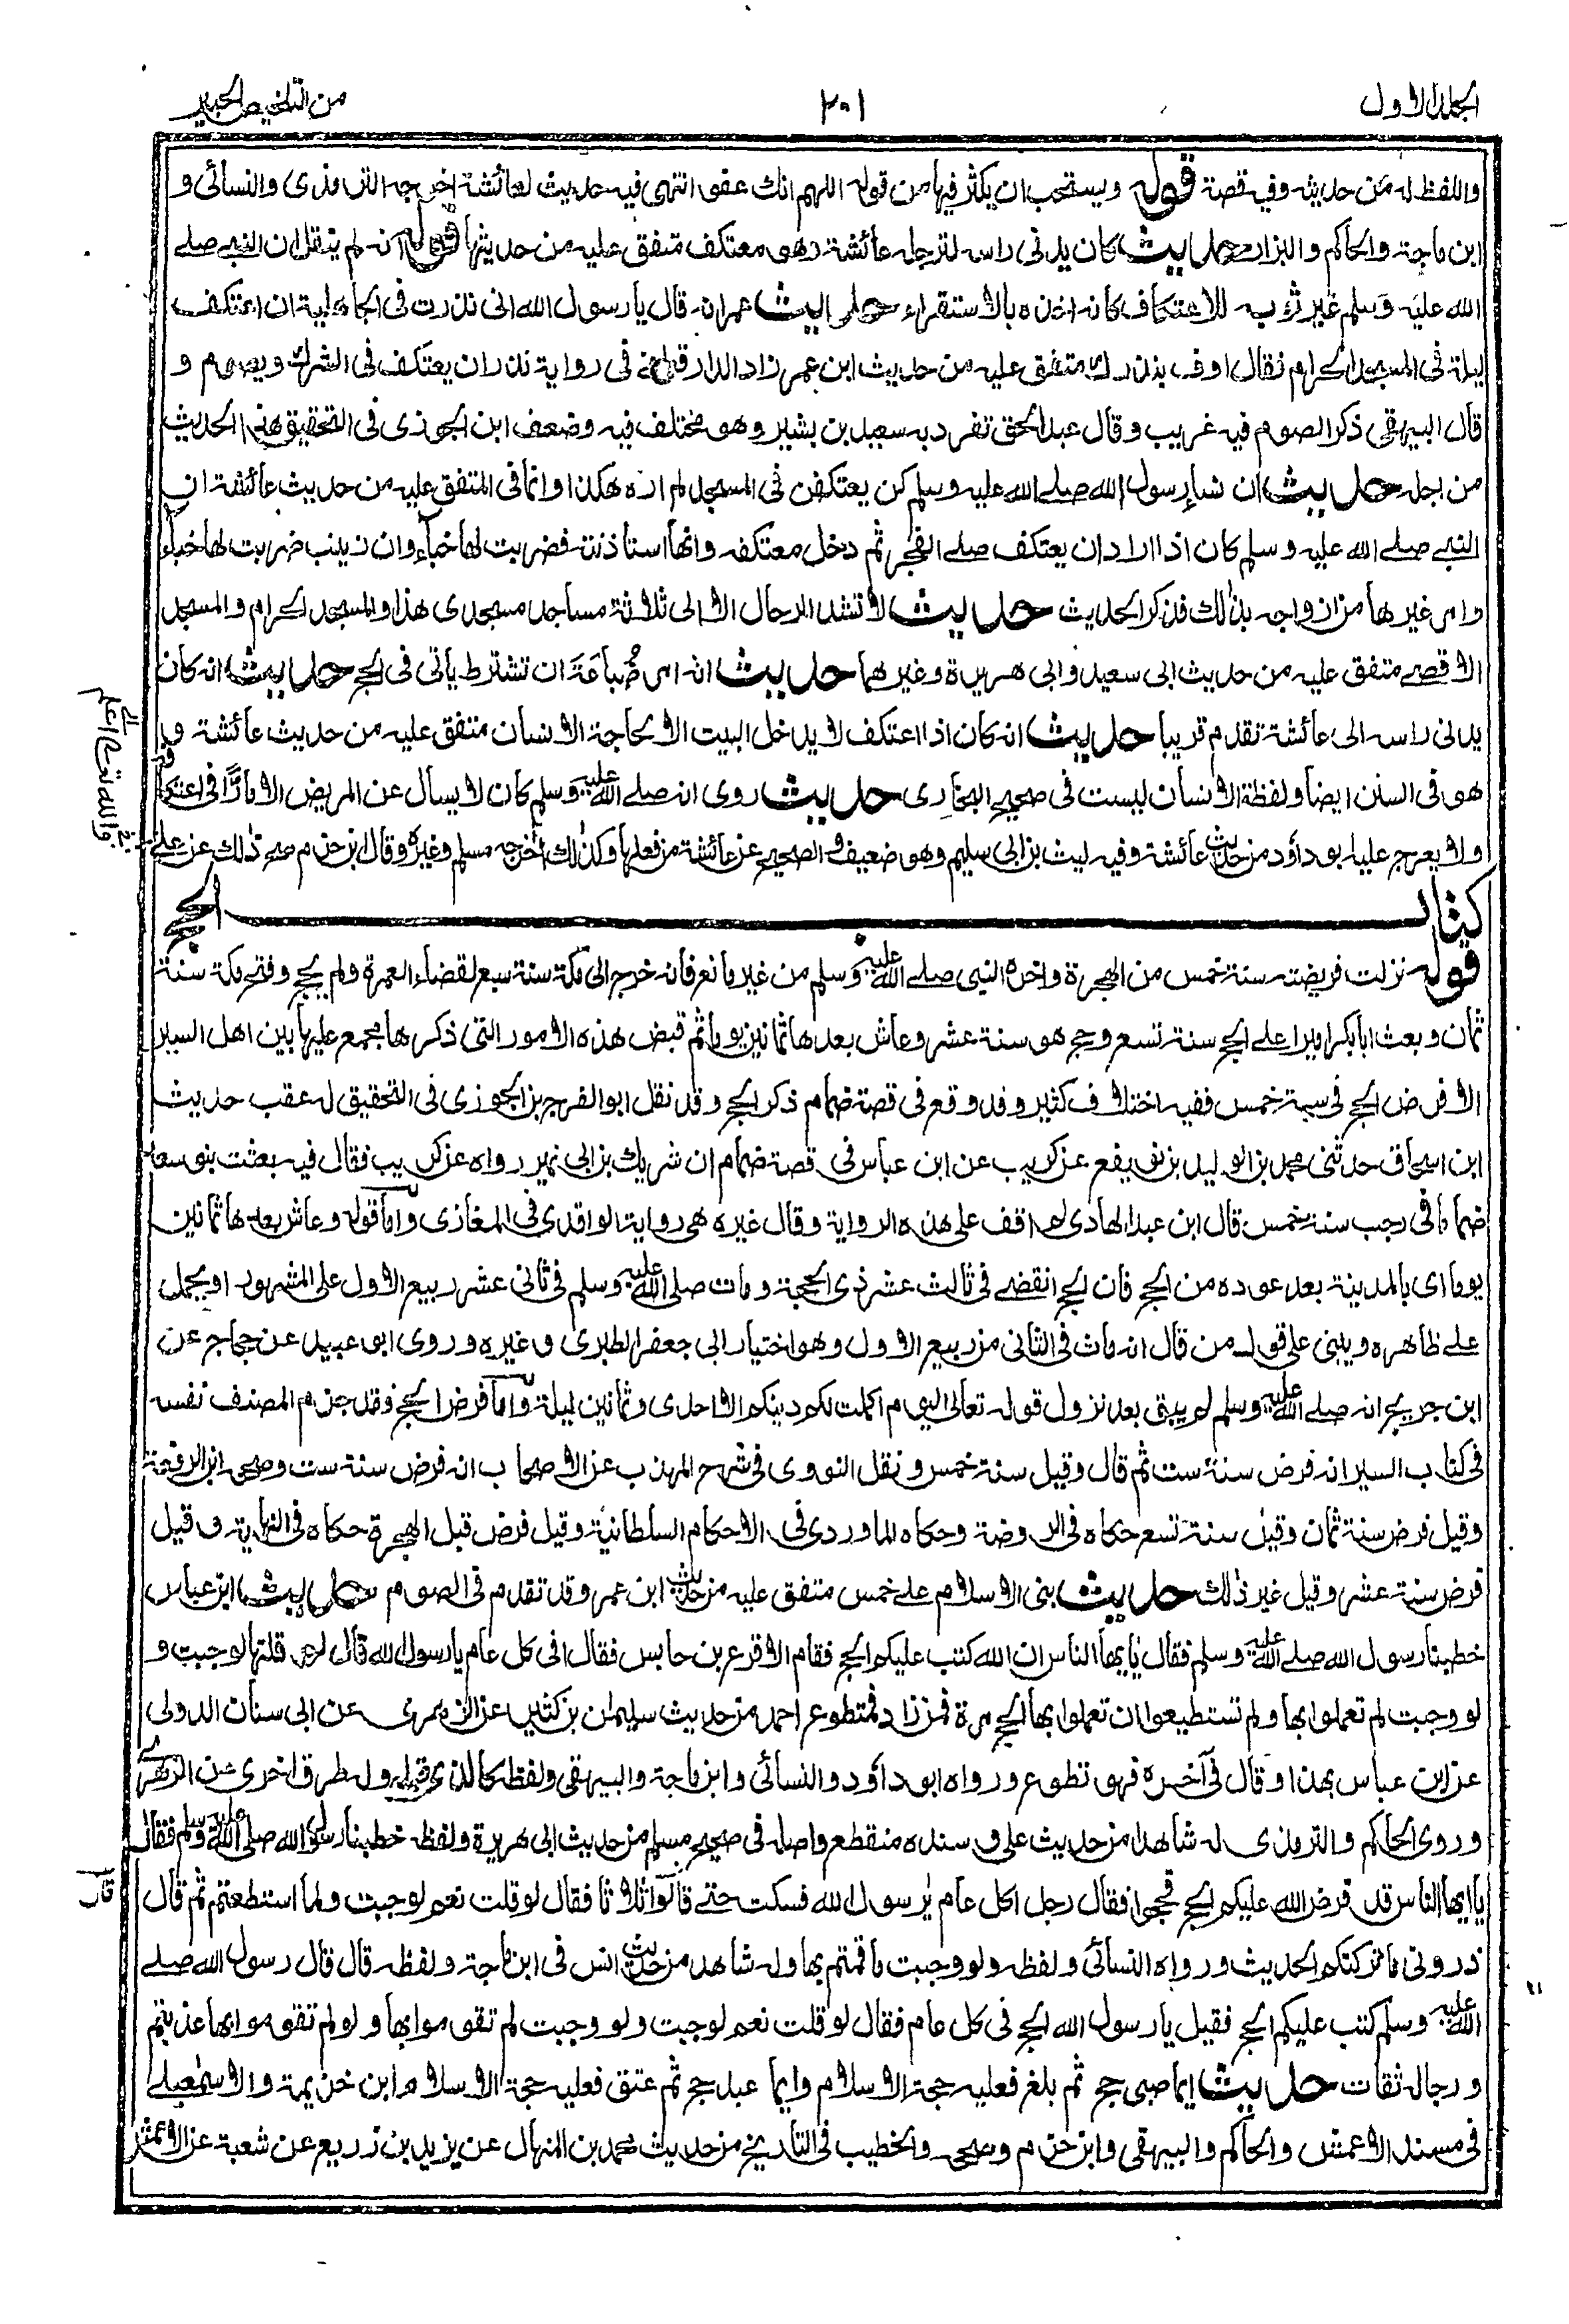 الجلد الاول
٢٠١
من التلخيص الحبير
واللفظ له من حديثه وفيه قصة قوله ويستحب ان يكثر فيها من قوله اللهم انك عفو انتهى فيه حديث لعائشة اخرجه الترمذى والنسائى و
ابن ماجة والحاكم والبزار حديث كان يدنى راسه لترجله عائشة وهو معتكف متفق عليه من حديثها قوله انه لم ينقل ان النبى صلے
الله عليه وسلم غير ثوبه للاعتكاف كانه اخذه بالاستقراء حديث عمر انه قال يا رسول الله انى نذرت فى الجاهلية ان اعتكف
ليلة فى المسجد الحرام فقال اوف بنذرك متفق عليه من حديث ابن عمر زاد الدارقطنے فى رواية نذر ان يعتكف فى الشرك ويصوم و
قال البيهقى ذكر الصوم فيه غريب وقال عبد الحق تفرد به سعيد بن بشير وهو مختلف فيه وضعف ابن الجوزى فى التحقيق هذا الحديث
من اجله حديث ان نساء رسول الله صلے الله عليه وسلم كن يعتكفن فى المسجد لم اره هكذا وانما فى المتفق عليه من حديث عائشة ان
النبى صلے الله عليه وسلم كان اذا اراد ان يعتكف صلے الفجر ثم دخل معتكفه وانها استاذنته فضربت لها خباء وان زينب ضربت لها خباء
وامر غيرها من ازواجه بذلك فذكر الحديث حديث لا تشد الرحال الا الى ثلاثة مساجد مسجدى هذا والمسجد الحرام والمسجد
الاقصے متفق عليه من حديث ابى سعيد وابى هريرة وغيرهما حديث انه امر ضُباعَةَ ان تشترط ياتى فى الحج حديث انه كان
يدنى راسه الى عائشة تقدم قريبا حديث انه كان اذا اعتكف لا يدخل البيت الا لحاجة الانسان متفق عليه من حديث عائشة و
هو فى السنن ايضا ولفظة الانسان ليست فى صحيح البخارى حديث روى انه صلے الله عليه وسلم كان لا يسال عن المريض الا مارًّا فى اعتكافه
ولا يعرج عليه ابو داؤد من حديث عائشة وفيه ليث بن ابى سليم وهو ضعيف والصحيح عن عائشة من فعلها وكذلك اخرجه مسلم وغيره وقال ابن حزم صح ذلك عن علے
والله تعالے اعلم
كتاب الحج
قوله نزلت فريضته سنة خمس من الهجرة واخره النبى صلے الله عليه وسلم من غير مانع فانه خرج الى مكة سنة سبع لقضاء العمرة ولم يحج وفتح مكة سنة
ثمان وبعث ابا بكر اميرا على الحج سنة تسع وحج هو سنة عشر وعاش بعدها ثمانين يوما ثم قبض هذه الامور التى ذكرها مجمع عليها بين اهل السير
الا فرض الحج فى سنة خمس ففيه اختلاف كثير وقد وقع فى قصة ضمام ذكر الحج وقد نقل ابو الفرج بن الجوزى فى التحقيق له عقب حديث
ابن اسحاق حدثنى محمد بن الوليد بن نويفع عن كريب عن ابن عباس فى قصة ضمام ان شريك بن ابى نمير رواه عن كريب فقال فيه بعثت بنو سعد
ضماما فى رجب سنة خمس قال ابن عبد الهادى لم اقف على هذه الرواية وقال غيره هى رواية الواقدى فى المغازى واما قوله وعاش بعدها ثمانين
يوما اى بالمدينة بعد عوده من الحج فان الحج انقضے فى ثالث عشر ذى الحجة ومات صلى الله عليه وسلم فى ثانى عشر ربيع الاول على المشهور او يحمل
على ظاهره ويبنى على قول من قال انه مات فى الثانى من ربيع الاول وهو اختيار ابى جعفر الطبرى وغيره وروى ابو عبيد عن حجاج عن
ابن جريج انه صلے الله عليه وسلم لم يبق بعد نزول قوله تعالى اليوم اكملت لكم دينكم الا احدى وثمانين ليلة واما فرض الحج فقد جزم المصنف نفسه
فى كتاب السير انه فرض سنة ست ثم قال وقيل سنة خمس ونقل النووى فى شرح المهذب عن الاصحاب انه فرض سنة ست وصححه ابن الرفعة
وقيل فرض سنة ثمان وقيل سنة تسع حكاه فى الروضة وحكاه الماوردى فى الاحكام السلطانية وقيل فرض قبل الهجرة حكاه فى النهاية وقيل
فرض سنة عشر وقيل غير ذلك حديث بنى الاسلام علے خمس متفق عليه من حديث ابن عمر وقد تقدم فى الصوم حديث ابن عباس
خطبنا رسول الله صلے الله عليه وسلم فقال يايها الناس ان الله كتب عليكم الحج فقام الاقرع بن حابس فقال افى كل عام يا رسول الله قال لو قلتها لوجبت و
لو وجبت لم تعملوا بها ولم تستطيعوا ان تعملوا بها الحج مرة فمن زاد فمتطوع احمد من حديث سليمان بن كثير عن الزهرى عن ابى سنان الدولى
عن ابن عباس بهذا وقال فى آخره فهو تطوع ورواه ابو داؤد والنسائى وابن ماجة والبيهقى ولفظه كالذى قبله وله طرق اخرى عن الزهرى
وروى الحاكم والترمذى له شاهدا من حديث على وسنده منقطع واصله فى صحيح مسلم من حديث ابى هريرة ولفظه خطبنا رسول الله صلى الله عليه وسلم فقال
يا ايها الناس قد فرض الله عليكم الحج فحجوا فقال رجل اكل عام يا رسول الله فسكت حتے قالوا ثلاثا فقال لو قلت نعم لوجبت ولما استطعتم ثم قال
قال
ذرونى ما تركتكم الحديث ورواه النسائى ولفظه ولو وجبت ما قمتم بها وله شاهد من حديث انس فى ابن ماجة ولفظه قال قال رسول الله صلے
الله عليه وسلم كتب عليكم الحج فقيل يا رسول الله الحج فى كل عام فقال لو قلت نعم لوجبت ولو وجبت لم تقوموا بها ولو لم تقوموا بها عذبتم
ورجاله ثقات حديث ايما صبى حج ثم بلغ فعليه حجة الاسلام وايما عبد حج ثم عتق فعليه حجة الاسلام ابن خزيمة والاسمعيلے
فى مسند الاعمش والحاكم والبيهقى وابن حزم وصححه والخطيب فى التاريخ من حديث محمد بن المنهال عن يزيد بن زريع عن شعبة عن الاعمش